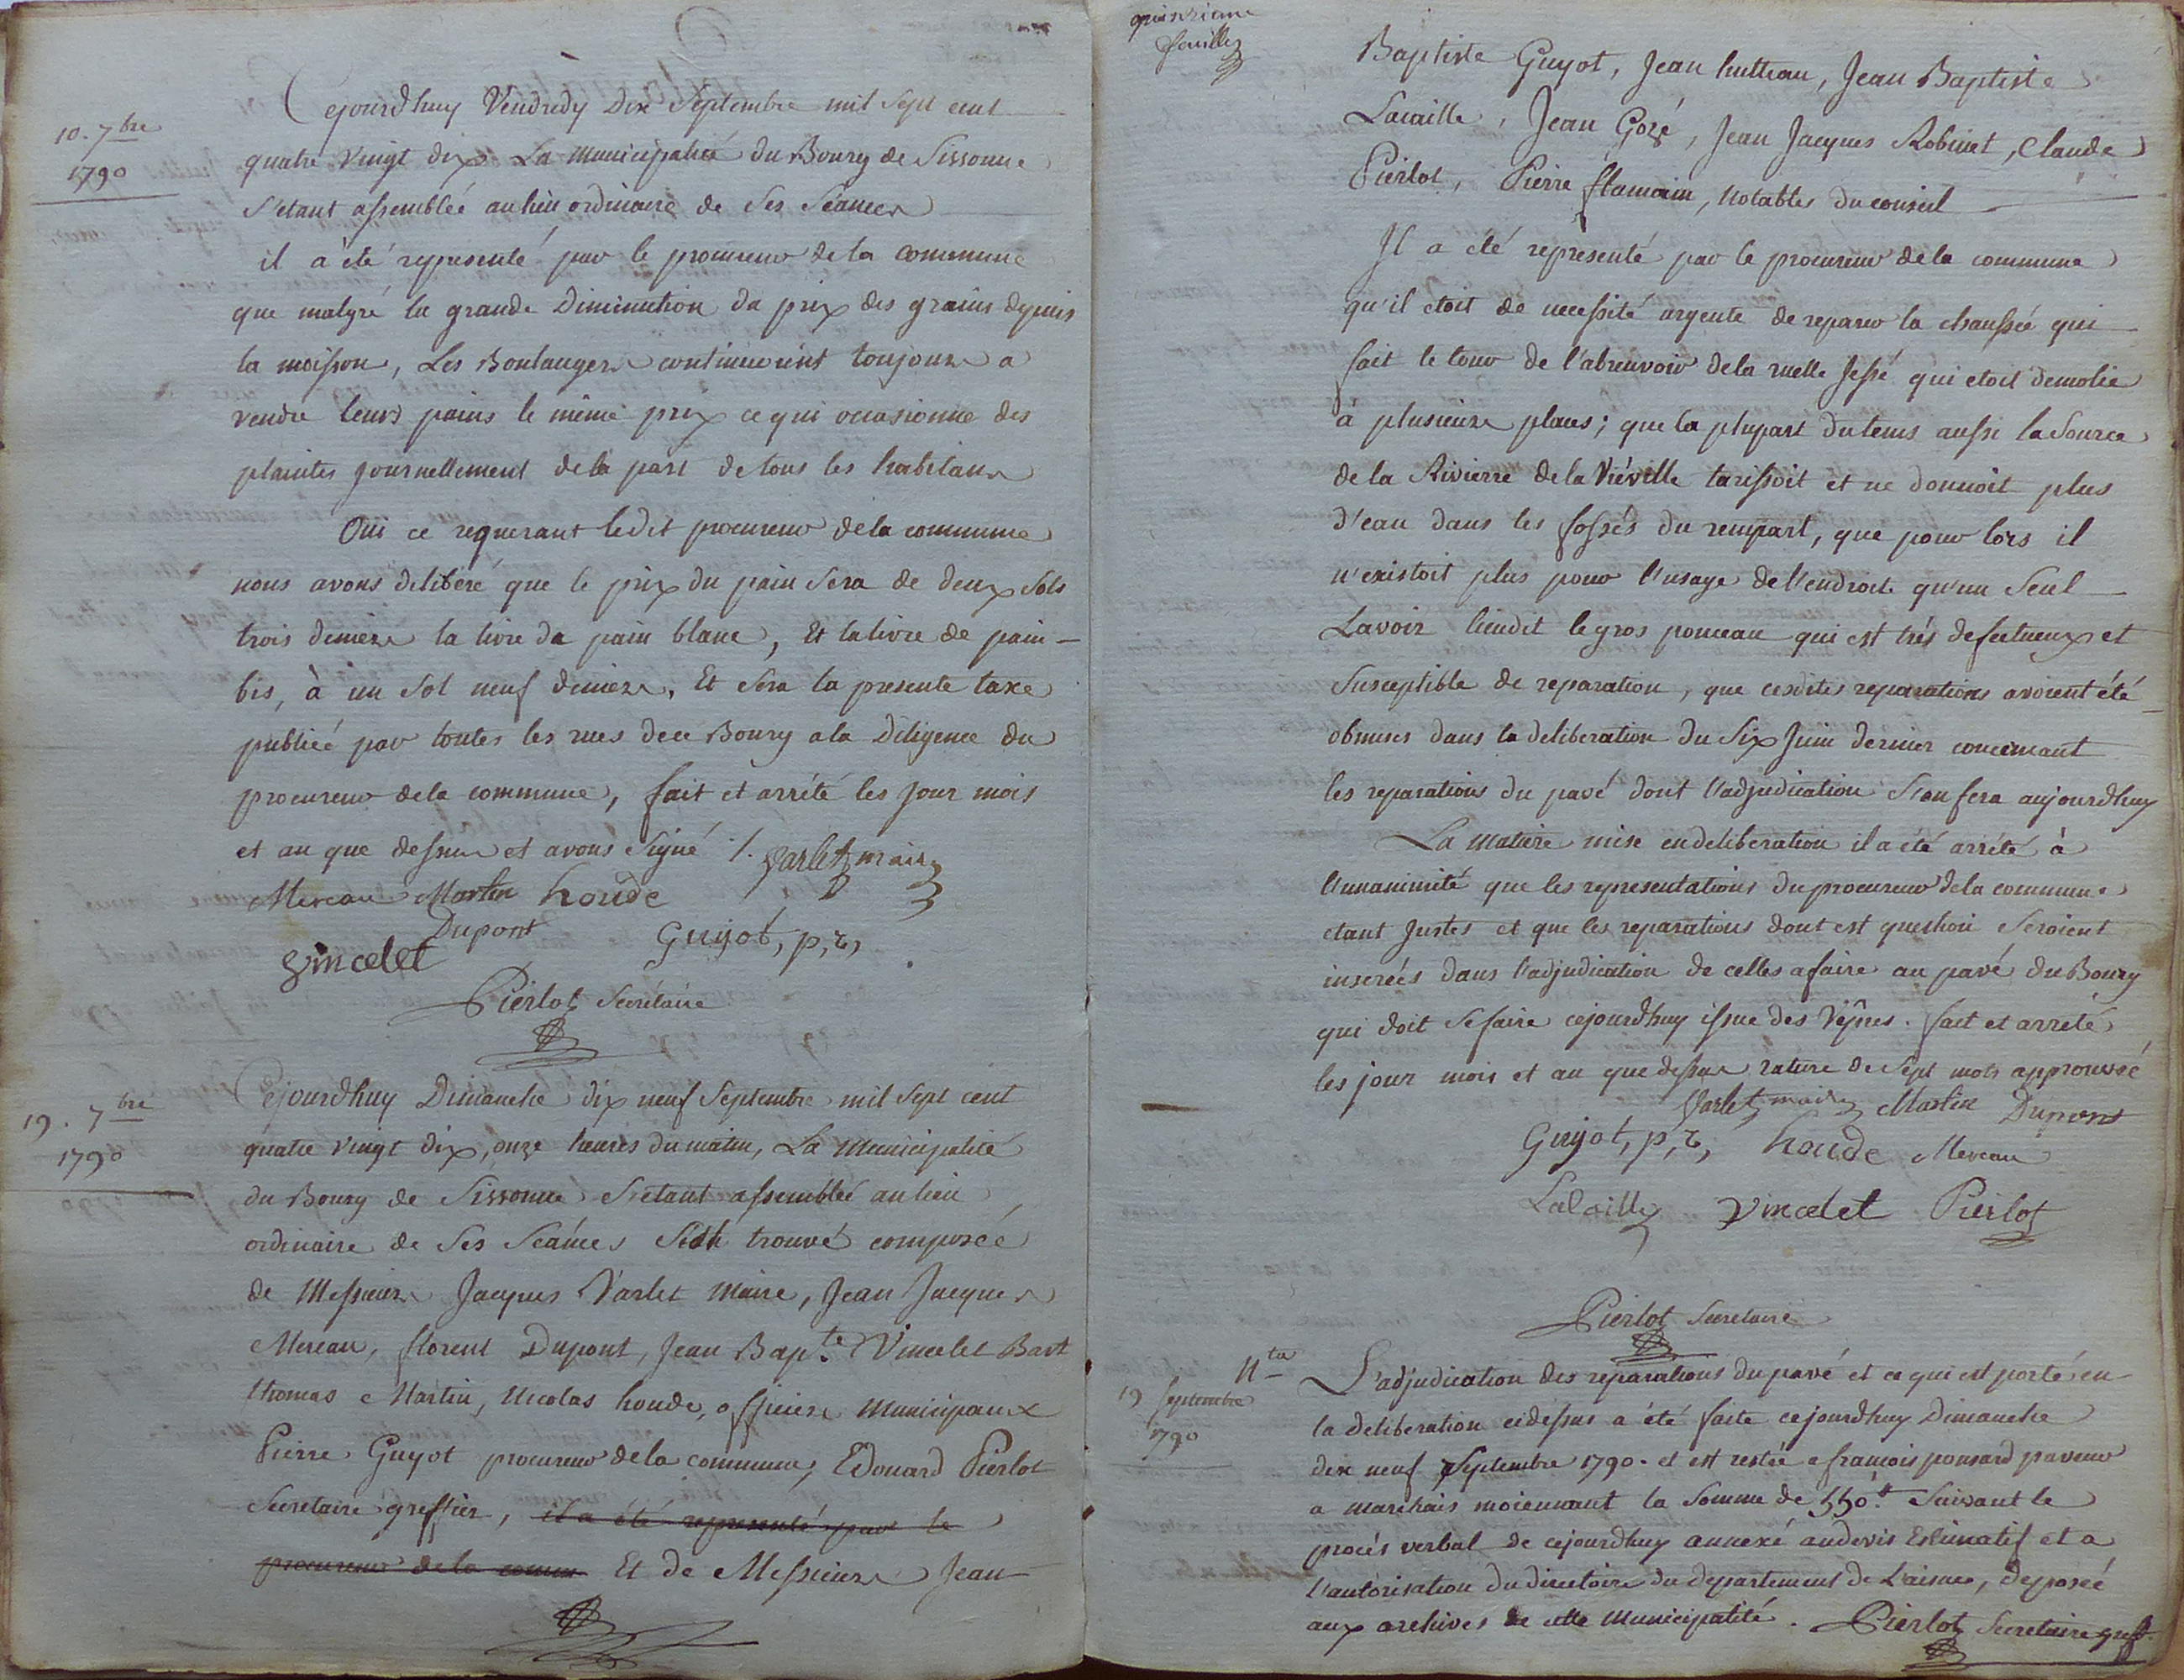 10. 7bre
1790
Cejourdhuy Vendredy Dix Septembre mil Sept cent
quatre vingt dix La municipalité du Bourg de Sissonne
S'etant assemblée au lieu ordinaire de Ses Séances
il à été representé par le procureur de la commune
que malgré la grande Diminution du prix des grains depuis
la moisson, Les Boulangers continuoient toujours a
vendre leurs pains le même prix ce qui occasionne des
plaintes journellement de la part de tous les habitans
Oui ce requerant ledit procureur de la commune
nous avons deliberé que le prix du pain Sera de deux Sols
trois deniers la livre du pain blanc, Et la livre de pain
bis, à un Sol neuf deniers. Et Sera la presente taxe
publiée par toutes les rues de ce Bourg a la Diligence du
procureur de la commune, fait et arrété les Jour mois
et an que dessus et avons Signé ./. Varlet maire
Mereau Martin houde
Dupont Guyot, p, r,
Vincelet
Pierlot Secrétaire
19. 7bre
1790
Cejourdhuy Dimanche dix neuf Septembre mil Sept cent
quatre vingt dix, onze heures du matin, La Municipalité
du Bourg de Sissonne S'etant assemblée au lieu
ordinaire de Ses Séances S'est trouvé composée
de Messieurs Jacques Varlet Maire, Jean Jacques
Mereau, florent Dupont, Jean Bapte Vincelet Bart
thomas Martin, Nicolas houde, officiers Municipaux
Pierre Guyot procureur de la commune, Edouard Pierlot
Secretaire greffier, il a été representé par le
procureur de la comm Et de Messieurs Jean
quinzieme
feuille
Baptiste Guyot, Jean hutteau, Jean Baptiste
Lacaille, Jean Gozé, Jean Jacques Robinet, Claude
Pierlot, Pierre flamain, Notables du conseil
Il a été representé par le procureur de la commune
qu'il etoit de necessité urgente de reparer la chaussée qui
fait le tour de l'abreuvoir de la ruelle Jessé qui etoit demolie
à plusieurs places; que la plupart du tems aussi la Source
de la Rivierre de la Viéville tarissoit et ne donnoit plus
d'eau dans les fossés du rempart, que pour lors il
n'existoit plus pour l'usage de l'endroit qu'un Seul
Lavoir lieudit le gros ponceau qui est trés defectueux et
Susceptible de reparation, que cesdites reparations avoient été
obmises dans la deliberation du Six Juin dernier concernant
les reparations du pavé dont l'adjudication S'en fera aujourdhuy
La matiere mise en deliberation il a été arrété à
l'unanimité que les representations du procureur de la commune
etant Justes et que les reparations dont est question Seroient
inserées dans l'adjudication de celles a faire au pavé du Bourg
qui doit Se faire cejourdhuy issue des Vêpres. fait et arreté
les jour mois et an que dessus rature de Sept mots approuvée
Varlet maire Martin Dupont
Guyot, p, r, houde Mereau
Lacaille Vincelet Pierlot
Pierlot Secretaire
Nta
19 Septembre
1790
L'adjudication des reparations du pavé et ce qui est porté en
la deliberation cidessus a été faite cejourdhuy Dimanche
dix neuf Septembre 1790. et est restée a francois ponsard paveur
a marchais moiennant la Somme de 550tt Suivant le
procés verbal de cejourdhuy annexé au devis Estimatif et a
l'autorisation du directoire du departement de L'aisne, deposée
aux archives de cette Municipalité. Pierlot Secretaire greff.